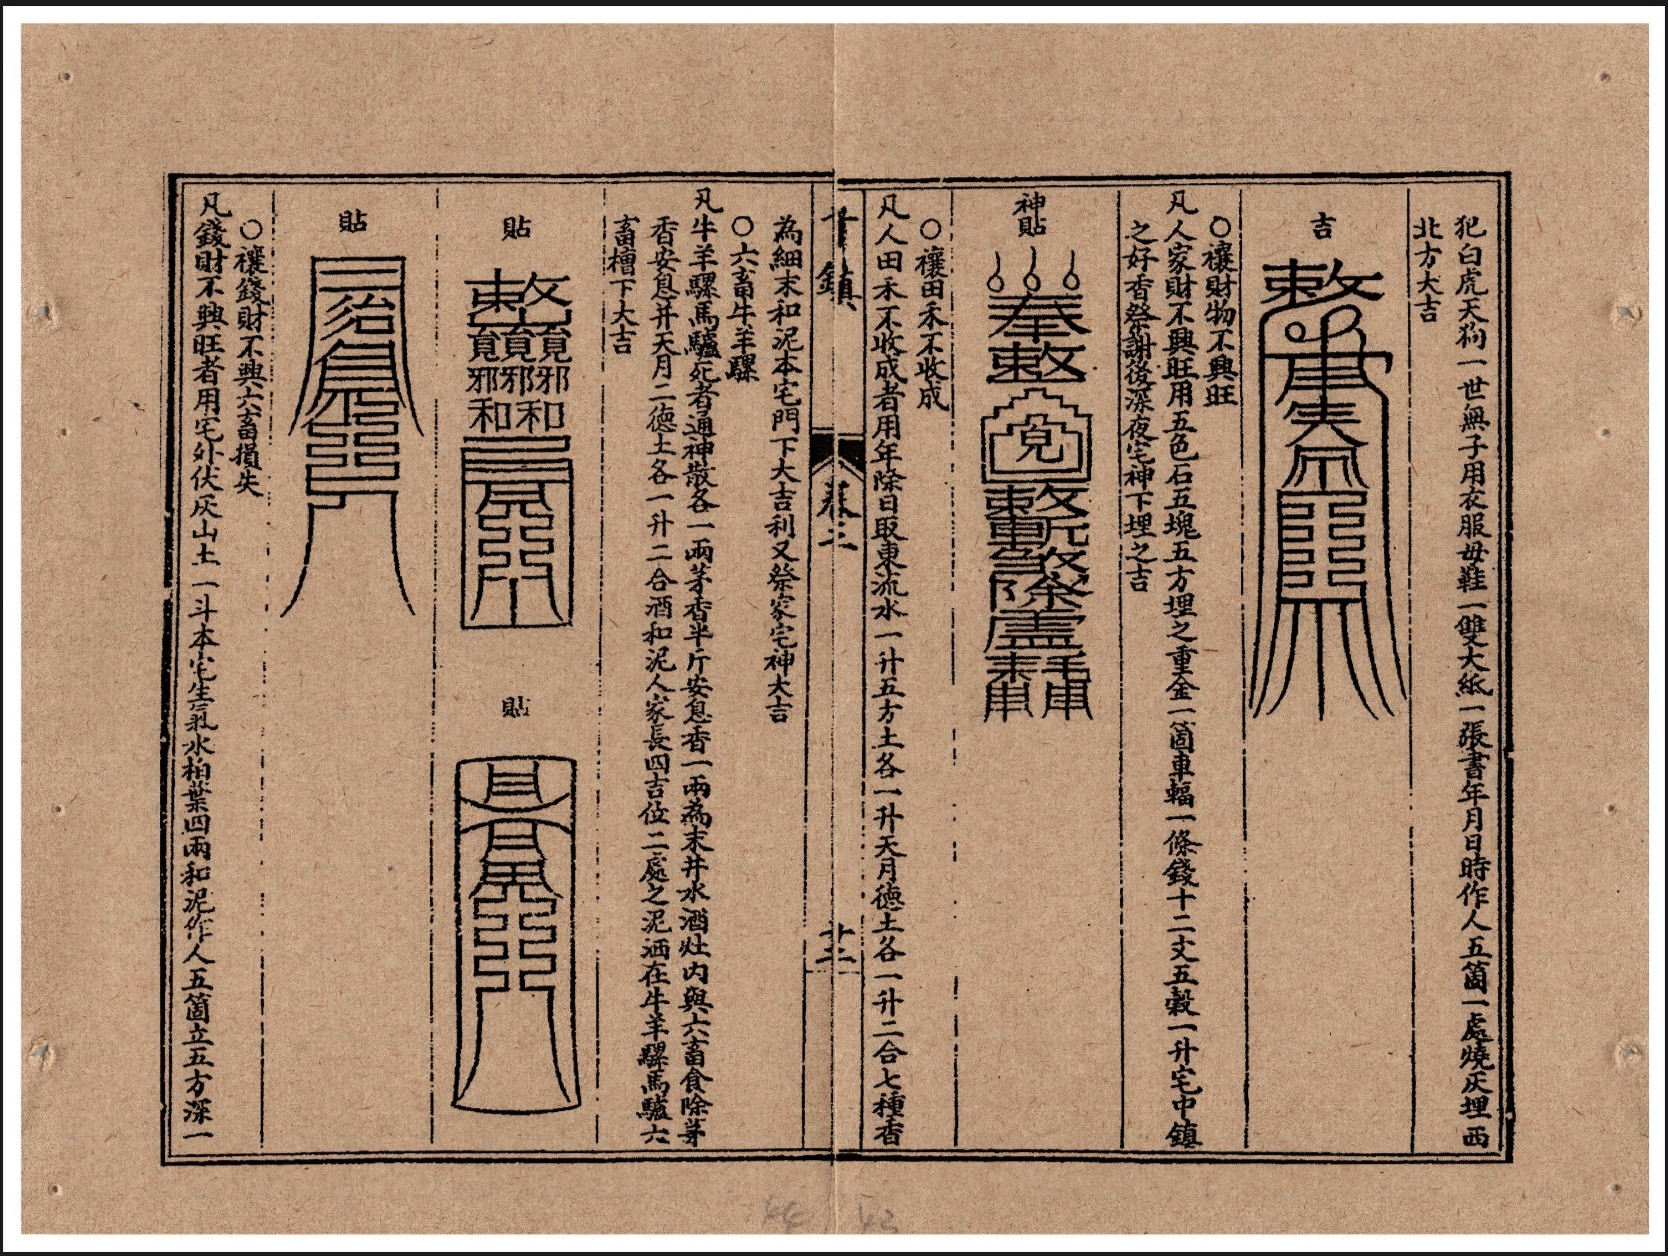 犯白虎天狗一世無子用衣服母鞋一雙大紙一張書年月日時作人五箇一處燒灰埋西
北方大吉
吉
○禳財物不興旺
凡人家財不興旺用五色石五塊五方埋之重金一箇車輻一條錢十二文五穀一升宅中鎮
之好香祭謝後深夜宅神下埋之吉
神貼
○禳田禾不收成
凡人田禾不收成者用年除日取東流水一升五方土各一升天月德土各一升二合七種香
鎮
卷三
廿二
為細末和泥本宅門下大吉利又祭家宅神大吉
○六畜牛羊騾
凡牛羊騾馬驢死者通神散各一兩茅香半斤安息香一兩為末井水酒灶內與六畜食除茅
香安息并天月二德土各一升二合酒和泥人家長四吉位二處之泥洒在牛羊騾馬驢六
畜槽下大吉
貼
貼
貼
○禳錢財不興六畜損失
凡錢財不興旺者用宅外伏灰山土一斗本宅生氣水柏葉四兩和泥作人五箇立五方深一
44
43